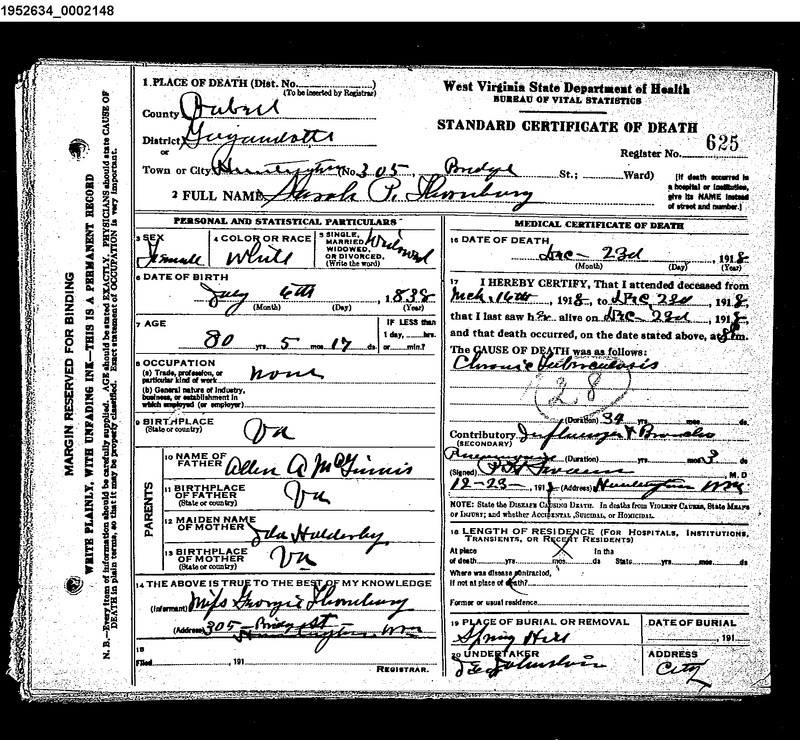 1952634_0002148
1. PLACE OF DEATH (Dist. No.
(To be inserted by Registrar)
County Cabell
District Guyandotte
or
Town or City Huntington (No. 305, Bridge St.; Ward)
2 FULL NAME Sarah P. Thornburg
West Virginia State Department of Health
BUREAU OF VITAL STATISTICS
STANDARD CERTIFICATE OF DEATH
Register No. 625
[If death occurred in
a hospital or institution,
give its NAME instead
of street and number.]
MARGIN RESERVED FOR BINDING
WRITE PLAINLY, WITH UNFADING INK—THIS IS A PERMANENT RECORD
N. B.—Every item of information should be carefully supplied. AGE should be stated EXACTLY. PHYSICIANS should state CAUSE OF
DEATH in plain terms, so that it may be properly classified. Exact statement of OCCUPATION is very important.
PERSONAL AND STATISTICAL PARTICULARS
3 SEX
Female
4 COLOR OR RACE
White
5 SINGLE,
MARRIED
WIDOWED,
OR DIVORCED.
(Write the word)
Widowed
6 DATE OF BIRTH
July 6th, 1838
(Month) (Day) (Year)
7 AGE
80 yrs. 5 mos. 17 ds.
IF LESS than
1 day, hrs.
or min.?
8 OCCUPATION
(a) Trade, profession, or
particular kind of work
none
(b) General nature of industry,
business, or establishment in
which employed (or employer)
9 BIRTHPLACE
(State or country)
Va
PARENTS
10 NAME OF
FATHER
Allen A McGinnis
11 BIRTHPLACE
OF FATHER
(State or country)
Va
12 MAIDEN NAME
OF MOTHER
Ida Holderby
13 BIRTHPLACE
OF MOTHER
(State or country)
Va
14 THE ABOVE IS TRUE TO THE BEST OF MY KNOWLEDGE
(Informant) Miss Georgie Thornburg
(Address) 305 - Bridge St
Huntington, WVa
15
Filed , 191
REGISTRAR.
MEDICAL CERTIFICATE OF DEATH
16 DATE OF DEATH
Dec - 23d, 1918
(Month) (Day) (Year)
17 I HEREBY CERTIFY, That I attended deceased from
Mch. 16th, 1918, to Dec. 23d, 1918,
that I last saw her alive on Dec - 23d, 1918,
and that death occurred, on the date stated above, at m.
The CAUSE OF DEATH was as follows:
Chronic Tuberculosis
28
(Duration) 34 yrs. mos. ds
Contributory Influenza & Broncho
(SECONDARY)
Pneumonia (Duration) yrs. mos 3 ds
(Signed) , M. D
12-23-, 1918 (Address) Huntington WVa
NOTE: State the DISEASE CAUSING DEATH. In deaths from VIOLENT CAUSES, State MEANS
OF INJURY; and whether ACCIDENTAL, SUICIDAL, OR HOMICIDAL.
18 LENGTH OF RESIDENCE (FOR HOSPITALS, INSTITUTIONS,
TRANSIENTS, OR RECENT RESIDENTS)
At place In the
of death yrs. mos. ds. State yrs. mos. ds.
Where was disease contracted,
If not at place of death?
Former or usual residence
19 PLACE OF BURIAL OR REMOVAL
Spring Hill
DATE OF BURIAL
, 191
20 UNDERTAKER
Johnston
ADDRESS
City